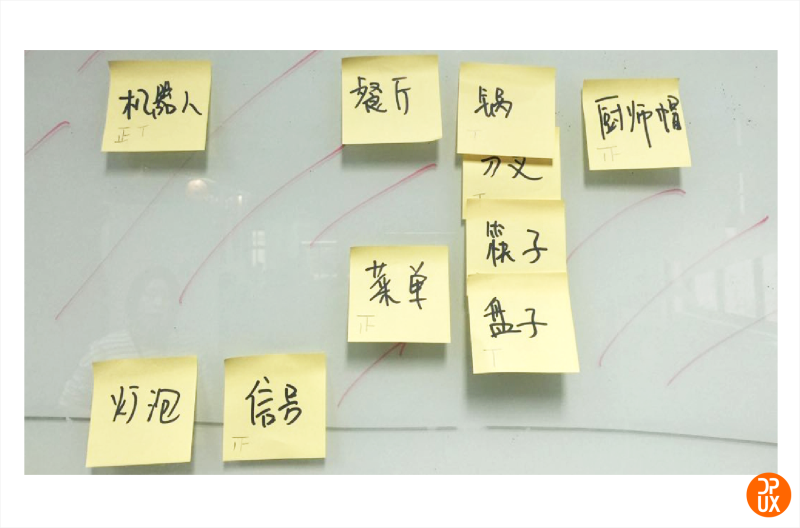 机器人
正丅
餐厅
锅
丅
厨师帽
正
刀叉
筷子
菜单
正
盘子
丅
灯泡
信号
正
DP
UX